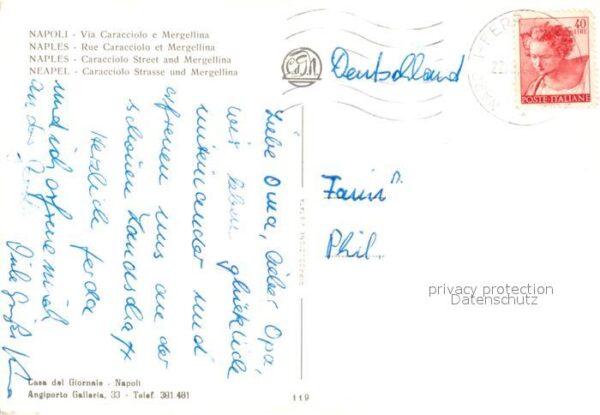 NAPOLI - Via Caracciolo e Mergellina
NAPLES - Rue Caracciolo et Mergellina
NAPLES - Caracciolo Street and Mergellina
NEAPEL - Caracciolo Strasse und Mergellina
Deutschland
40
LIRE
POSTE ITALIANE
Liebe Oma, lieber Opa,
wir leben glücklich
miteinander und
erfreuen uns an der
schönen Landschaft
Herzlich
und ich erfreue mich
an der
Viele Grüße
Phil.
privacy protection
Datenschutz
Casa del Giornale - Napoli
Angiporto Galleria, 33 - Telef. 391.481
119